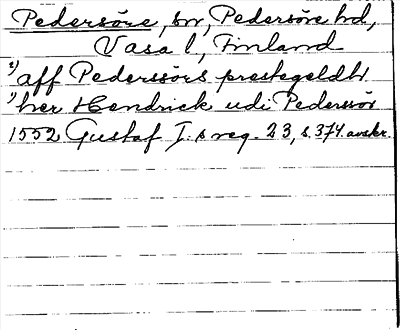 Pedersöre, sn, Pedersöre hd,
Vasa l, Finland
2) aff Pederssörs prestegeldh
1) her Hendrick udi Pederssör
1552 Gustaf I:s reg. 23, s. 374. avskr.